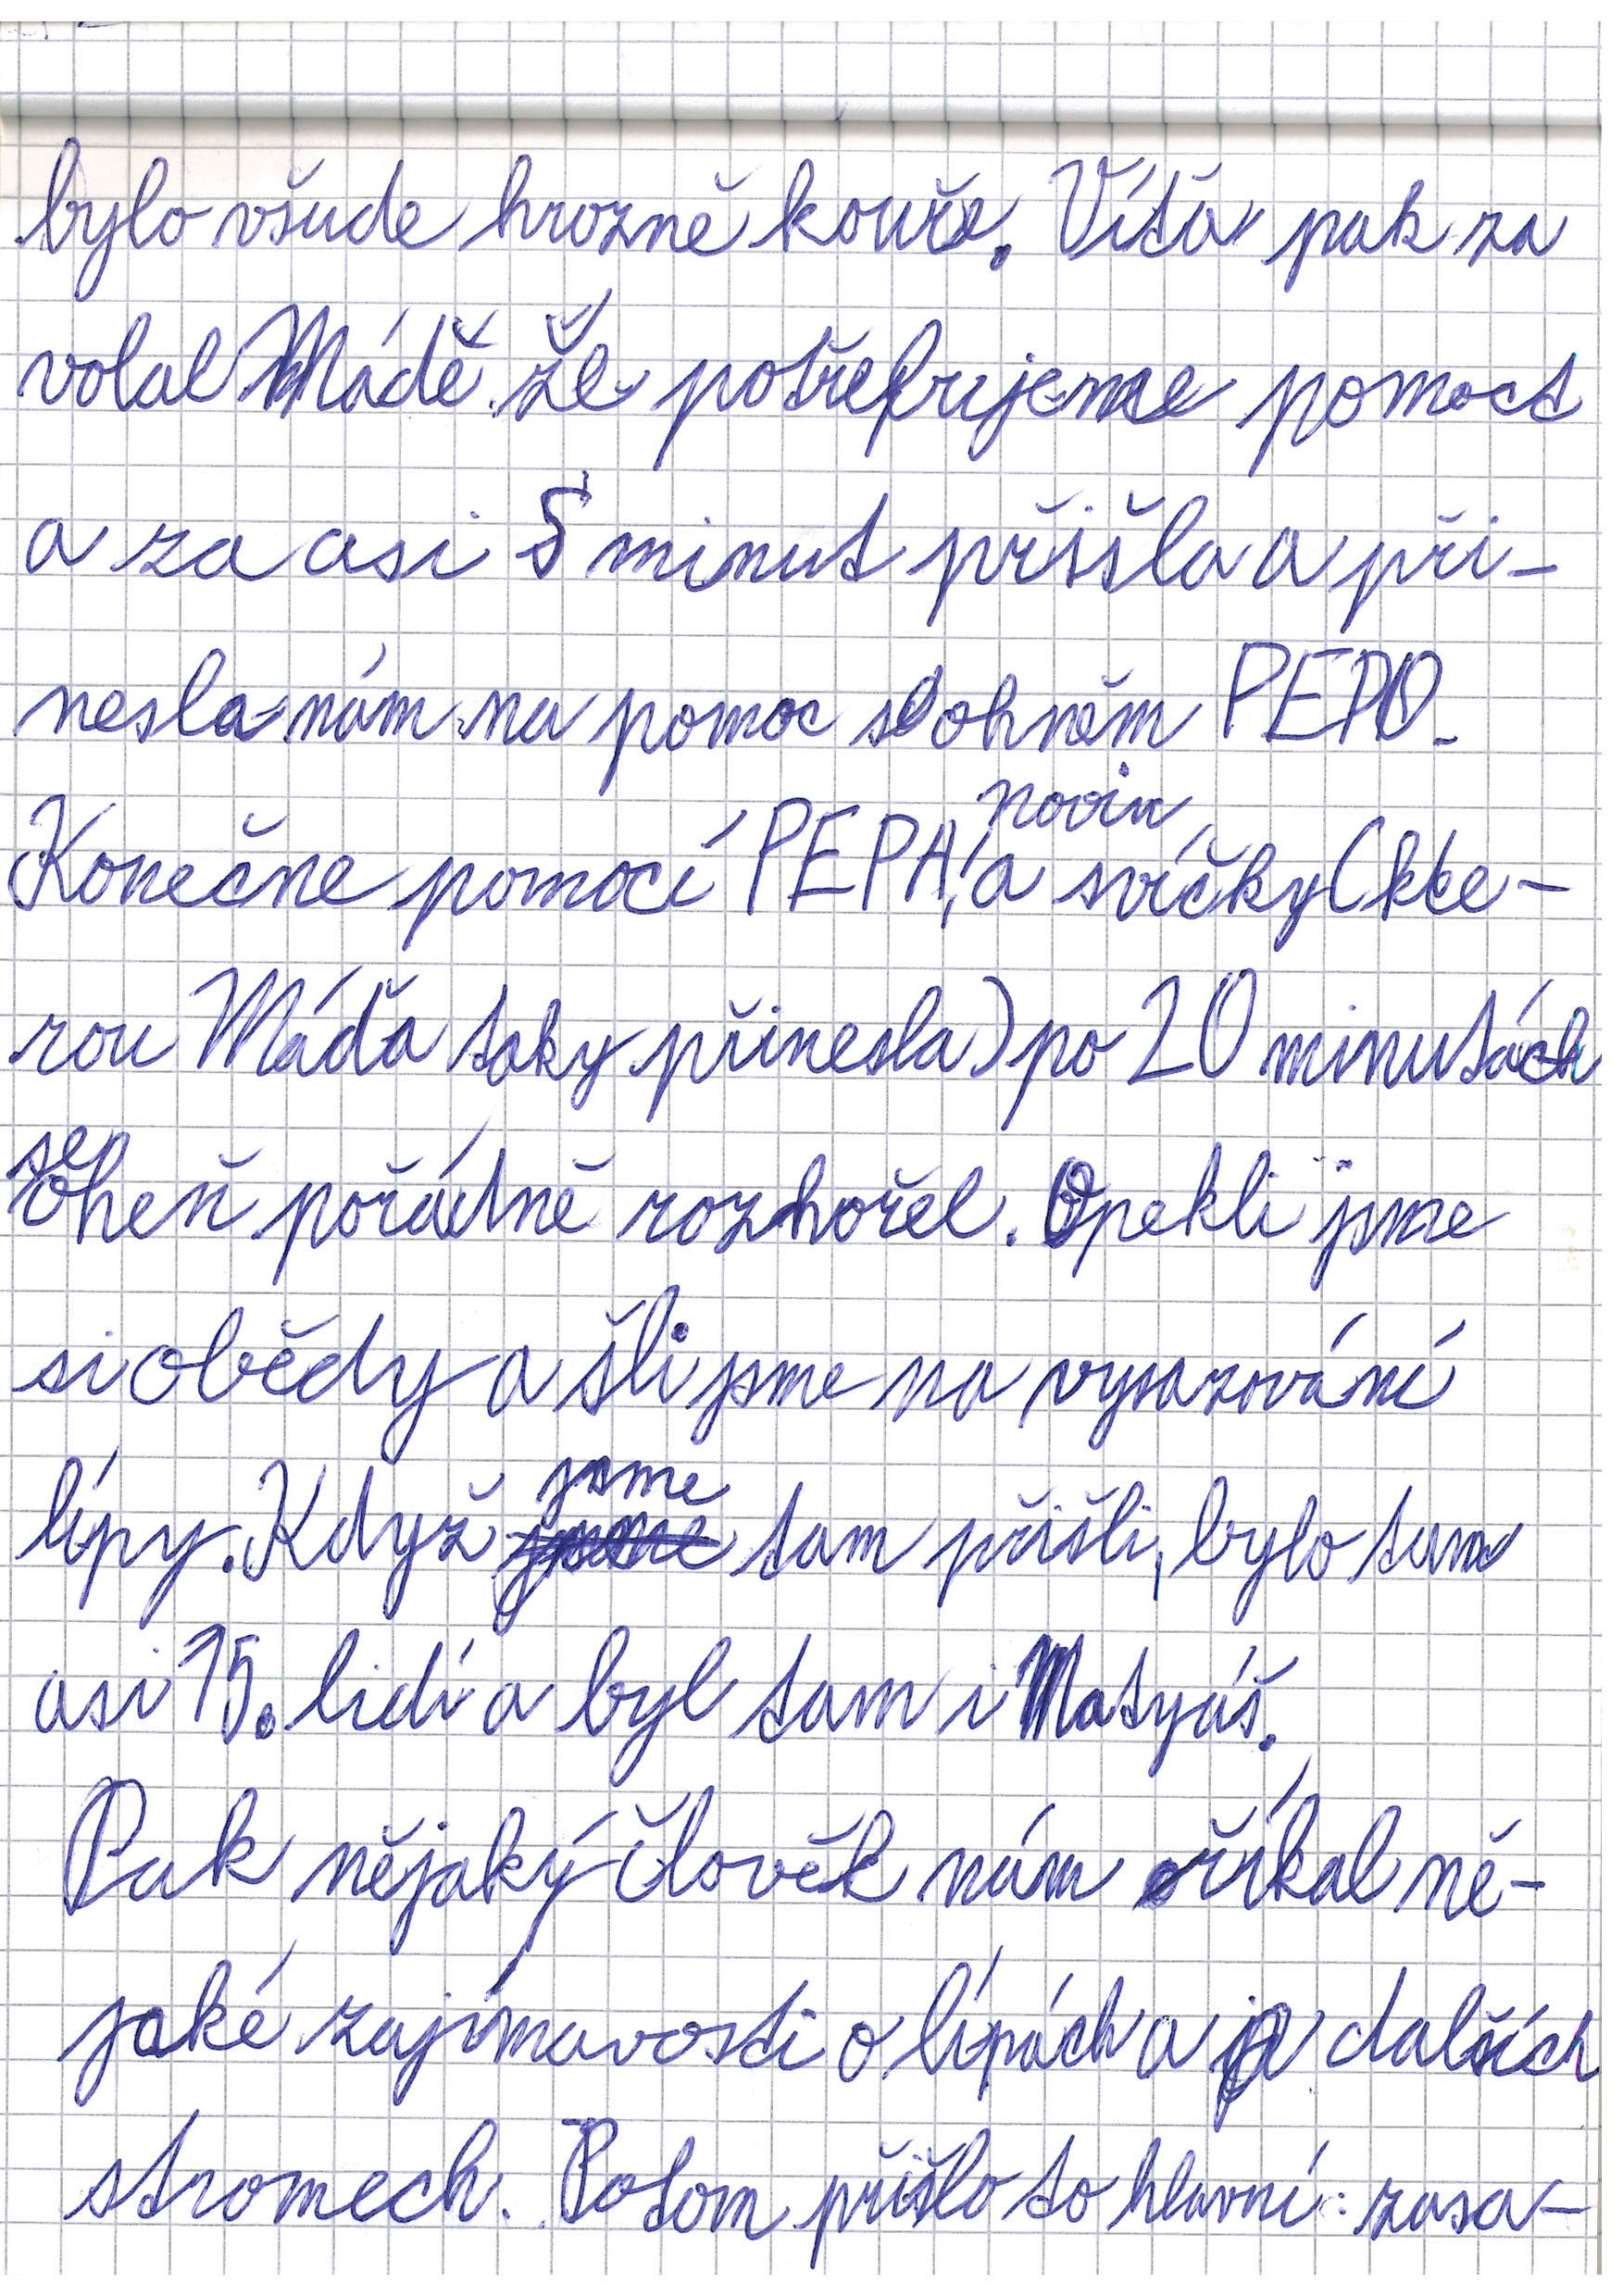 bylo všude hrozně kouře. Víťa pak za
volal Mádě že potřebujeme pomoct
a za asi 5 minut přišla a při-
nesla nám na pomoc s ohněm PEPO.
Konečne pomocí PEPA, novin a svíčky (kte-
rou Máďa taky přinesla) po 20 minutách
se oheň pořádně rozhořel. Opekli jsme
si obědy a šli jsme na vysazování
lípy. Když jsme tam přišli, bylo tam
asi 15. lidí a byl tam i Matyáš.
Pak nějaký člověk nám říkal ně-
jaké zajímavosti o lípách a o dalších
stromech. Potom přišlo to hlavní: zasa-